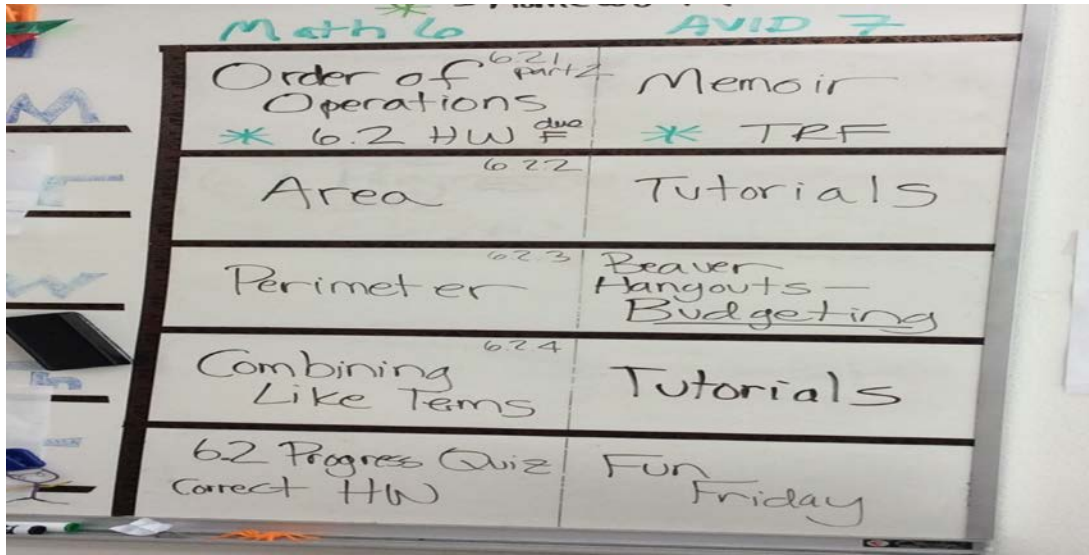 Math 6
AVID 7
M
Order of 6.2.1
Operations part 2
* 6.2 HW due F
Memoir
* TRF
T
Area 6.2.2
Tutorials
W
Perimeter 6.2.3
Beaver
Hangouts –
Budgeting
Combining 6.2.4
Like Terms
Tutorials
6.2 Progress Quiz
Correct HW
Fun
Friday